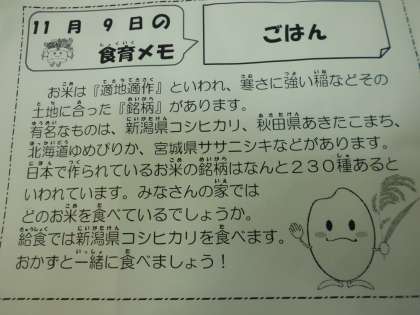 11月 9日の
食育メモ
ごはん
お米は『適地適作』といわれ、寒さに強い稲などその
土地に合った『銘柄』があります。
有名なものは、新潟県コシヒカリ、秋田県あきたこまち、
北海道ゆめぴりか、宮城県ササニシキなどがあります。
日本で作られているお米の銘柄はなんと230種あると
いわれています。みなさんの家では
どのお米を食べているでしょうか。
給食では新潟県コシヒカリを食べます。
おかずと一緒に食べましょう！